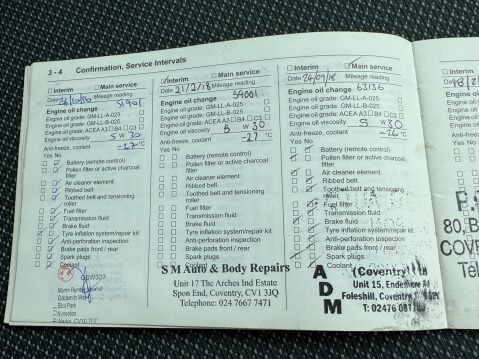 3 - 4 Confirmation, Service Intervals
Interim Main service
Date 26/10/16 Mileage reading
Engine oil change 51901
Engine oil grade: GM-LL-A-025
Engine oil grade: GM-LL-B-025
Engine oil grade: ACEA A3 B4 C3
Engine oil viscosity 5 W 30
Anti-freeze, coolant -27 °C
Yes No
Battery (remote control)
Pollen filter or active charcoal
filter
Air cleaner element
Ribbed belt
Toothed belt and tensioning
roller
Fuel filter
Transmission fluid
Brake fluid
Tyre inflation system/repair kit
Anti-perforation inspection
Brake pads front / rear
Spark plugs
Coolant
Interim Main service
Date 21/2/18 Mileage reading
Engine oil change 59001
Engine oil grade: GM-LL-A-025
Engine oil grade: GM-LL-B-025
Engine oil grade: ACEA A3 B4 C3
Engine oil viscosity 5 W 30
Anti-freeze, coolant -27 °C
Yes No
Battery (remote control)
Pollen filter or active charcoal
filter
Air cleaner element
Ribbed belt
Toothed belt and tensioning
roller
Fuel filter
Transmission fluid
Brake fluid
Tyre inflation system/repair kit
Anti-perforation inspection
Brake pads front / rear
Spark plugs
S M Auto & Body Repairs
Unit 17 The Arches Ind Estate
Spon End, Coventry, CV1 3JQ
Telephone: 024 7667 7471
Interim Main service
Date 24/09/18 Mileage reading
Engine oil change 63136
Engine oil grade: GM-LL-A-025
Engine oil grade: GM-LL-B-025
Engine oil grade: ACEA A3 B4 C3
Engine oil viscosity 5 W 30
Anti-freeze, coolant -26 °C
Yes No
Battery (remote control)
Pollen filter or active charcoal
filter
Air cleaner element
Ribbed belt
Toothed belt and tensioning
roller
Fuel filter
Transmission fluid
Brake fluid
Tyre inflation system/repair kit
Anti-perforation inspection
Brake pads front / rear
Spark plugs
Coolant
ADM
(Coventry)
Unit 15,
Foleshill, Coventry
T: 02476
80,